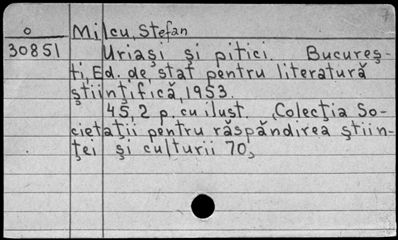 o Milcu, Stefan
30851 Uriași și pitici. Bucureș-
ti, Ed. de stat pentru literatură
științifică, 1953.
45,2 p. cu ilust. Colecția So-
cietații pentru răspăndirea știin-
ței și culturii 70,